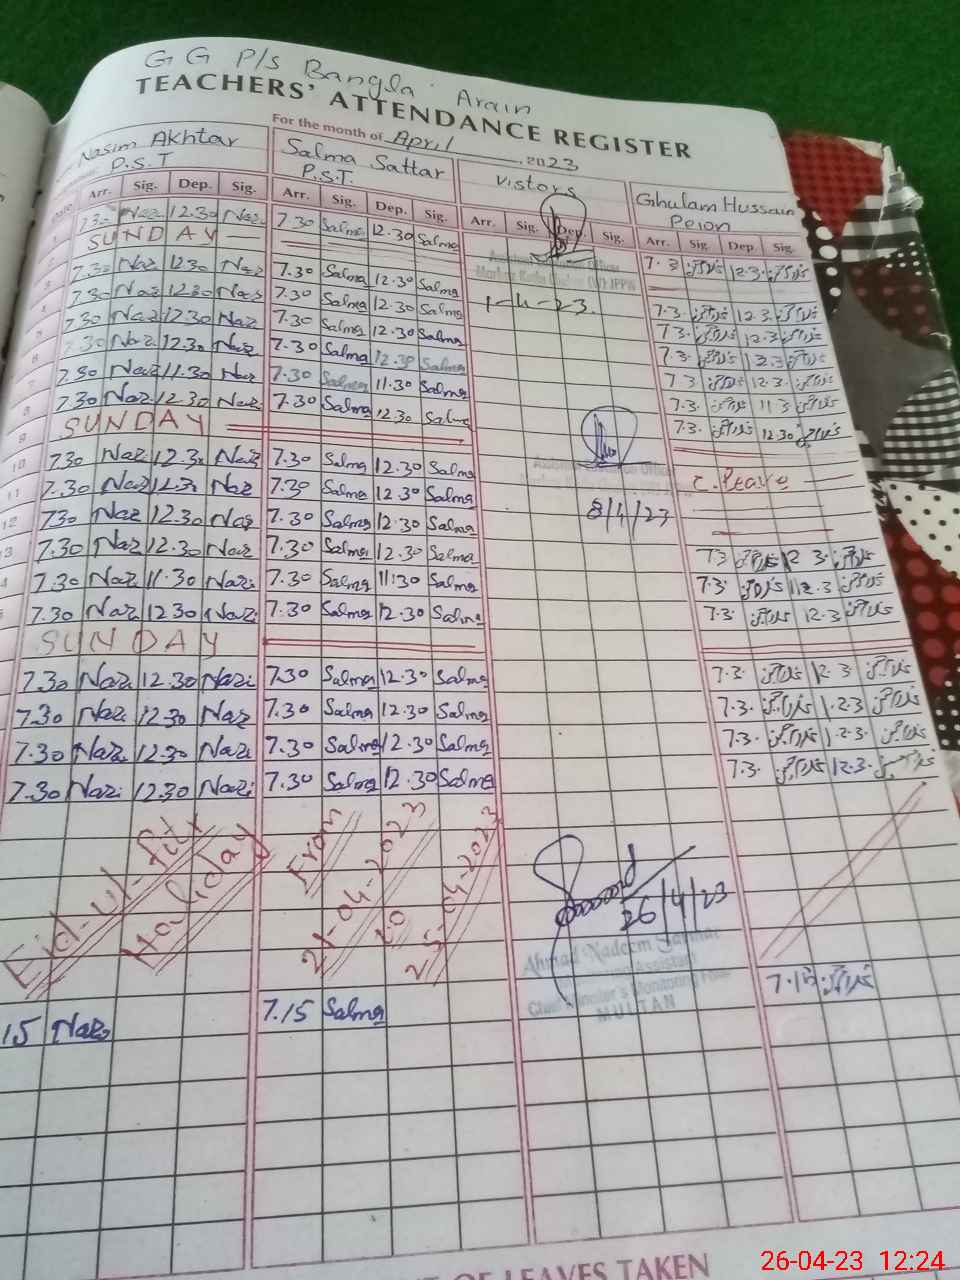 G G P/s Bangla Arain
TEACHERS' ATTENDANCE REGISTER
For the month of April 2023
Nasim Akhtar Salma Sattar Vistors Ghulam Hussain
P.S.T P.S.T. Peion
Arr. Sig. Dep. Sig. Arr. Sig. Dep. Sig. Arr. Sig. Dep. Sig. Arr. Sig. Dep. Sig.
7.30 Naz 12.30 Naz 7.30 Salma 12.30 Salma 7.3 12.3
SUNDAY
7.30 Naz 12.30 Naz 7.30 Salma 12.30 Salma 7.3 12.3
7.30 Naz 12.30 Naz 7.30 Salma 12.30 Salma 7.3 12.3
7.30 Naz 12.30 Naz 7.30 Salma 12.30 Salma 7.3 12.3
7.30 Naz 12.30 Naz 7.30 Salma 12.30 Salma 7.3 12.3
7.30 Naz 11.30 Naz 7.30 Salma 11.30 Salma 7.3 11.3
7.30 Naz 12.30 Naz 7.30 Salma 12.30 Salma 7.3 12.30
1-4-23
9 SUNDAY
10 7.30 Naz 12.30 Naz 7.30 Salma 12.30 Salma C. Leave
11 7.30 Naz 12.30 Naz 7.30 Salma 12.30 Salma
8/4/23
12 730 Naz 12.30 Naz 7.30 Salma 12.30 Salma
7.30 Naz 12.30 Naz 7.30 Salma 12.30 Salma 7.3 12 3
7.30 Naz 11.30 Naz 7.30 Salma 11:30 Salma 7.3 12.3
7.30 Naz 12.30 Naz 7.30 Salma 12.30 Salma 7.3 12.3
SUNDAY
7.30 Naz 12.30 Naz 7.30 Salma 12.30 Salma 7.3 12.3
7.30 Naz 12.30 Naz 7.30 Salma 12.30 Salma 7.3 12.3
7.30 Naz 12.30 Naz 7.30 Salma 12.30 Salma 7.3 12.3
7.30 Naz 12.30 Naz 7.30 Salma 12.30 Salma 7.3 12.3
Eid-ul-fitr
Holiday
From
21-04-2023
to
25-04-2023
26/4/23
Ahmad Nadeem
Monitoring Assistant
Chief Minister's Monitoring Force
MULTAN
15 Naz 7.15 Salma 7.15
OF LEAVES TAKEN
26-04-23 12:24